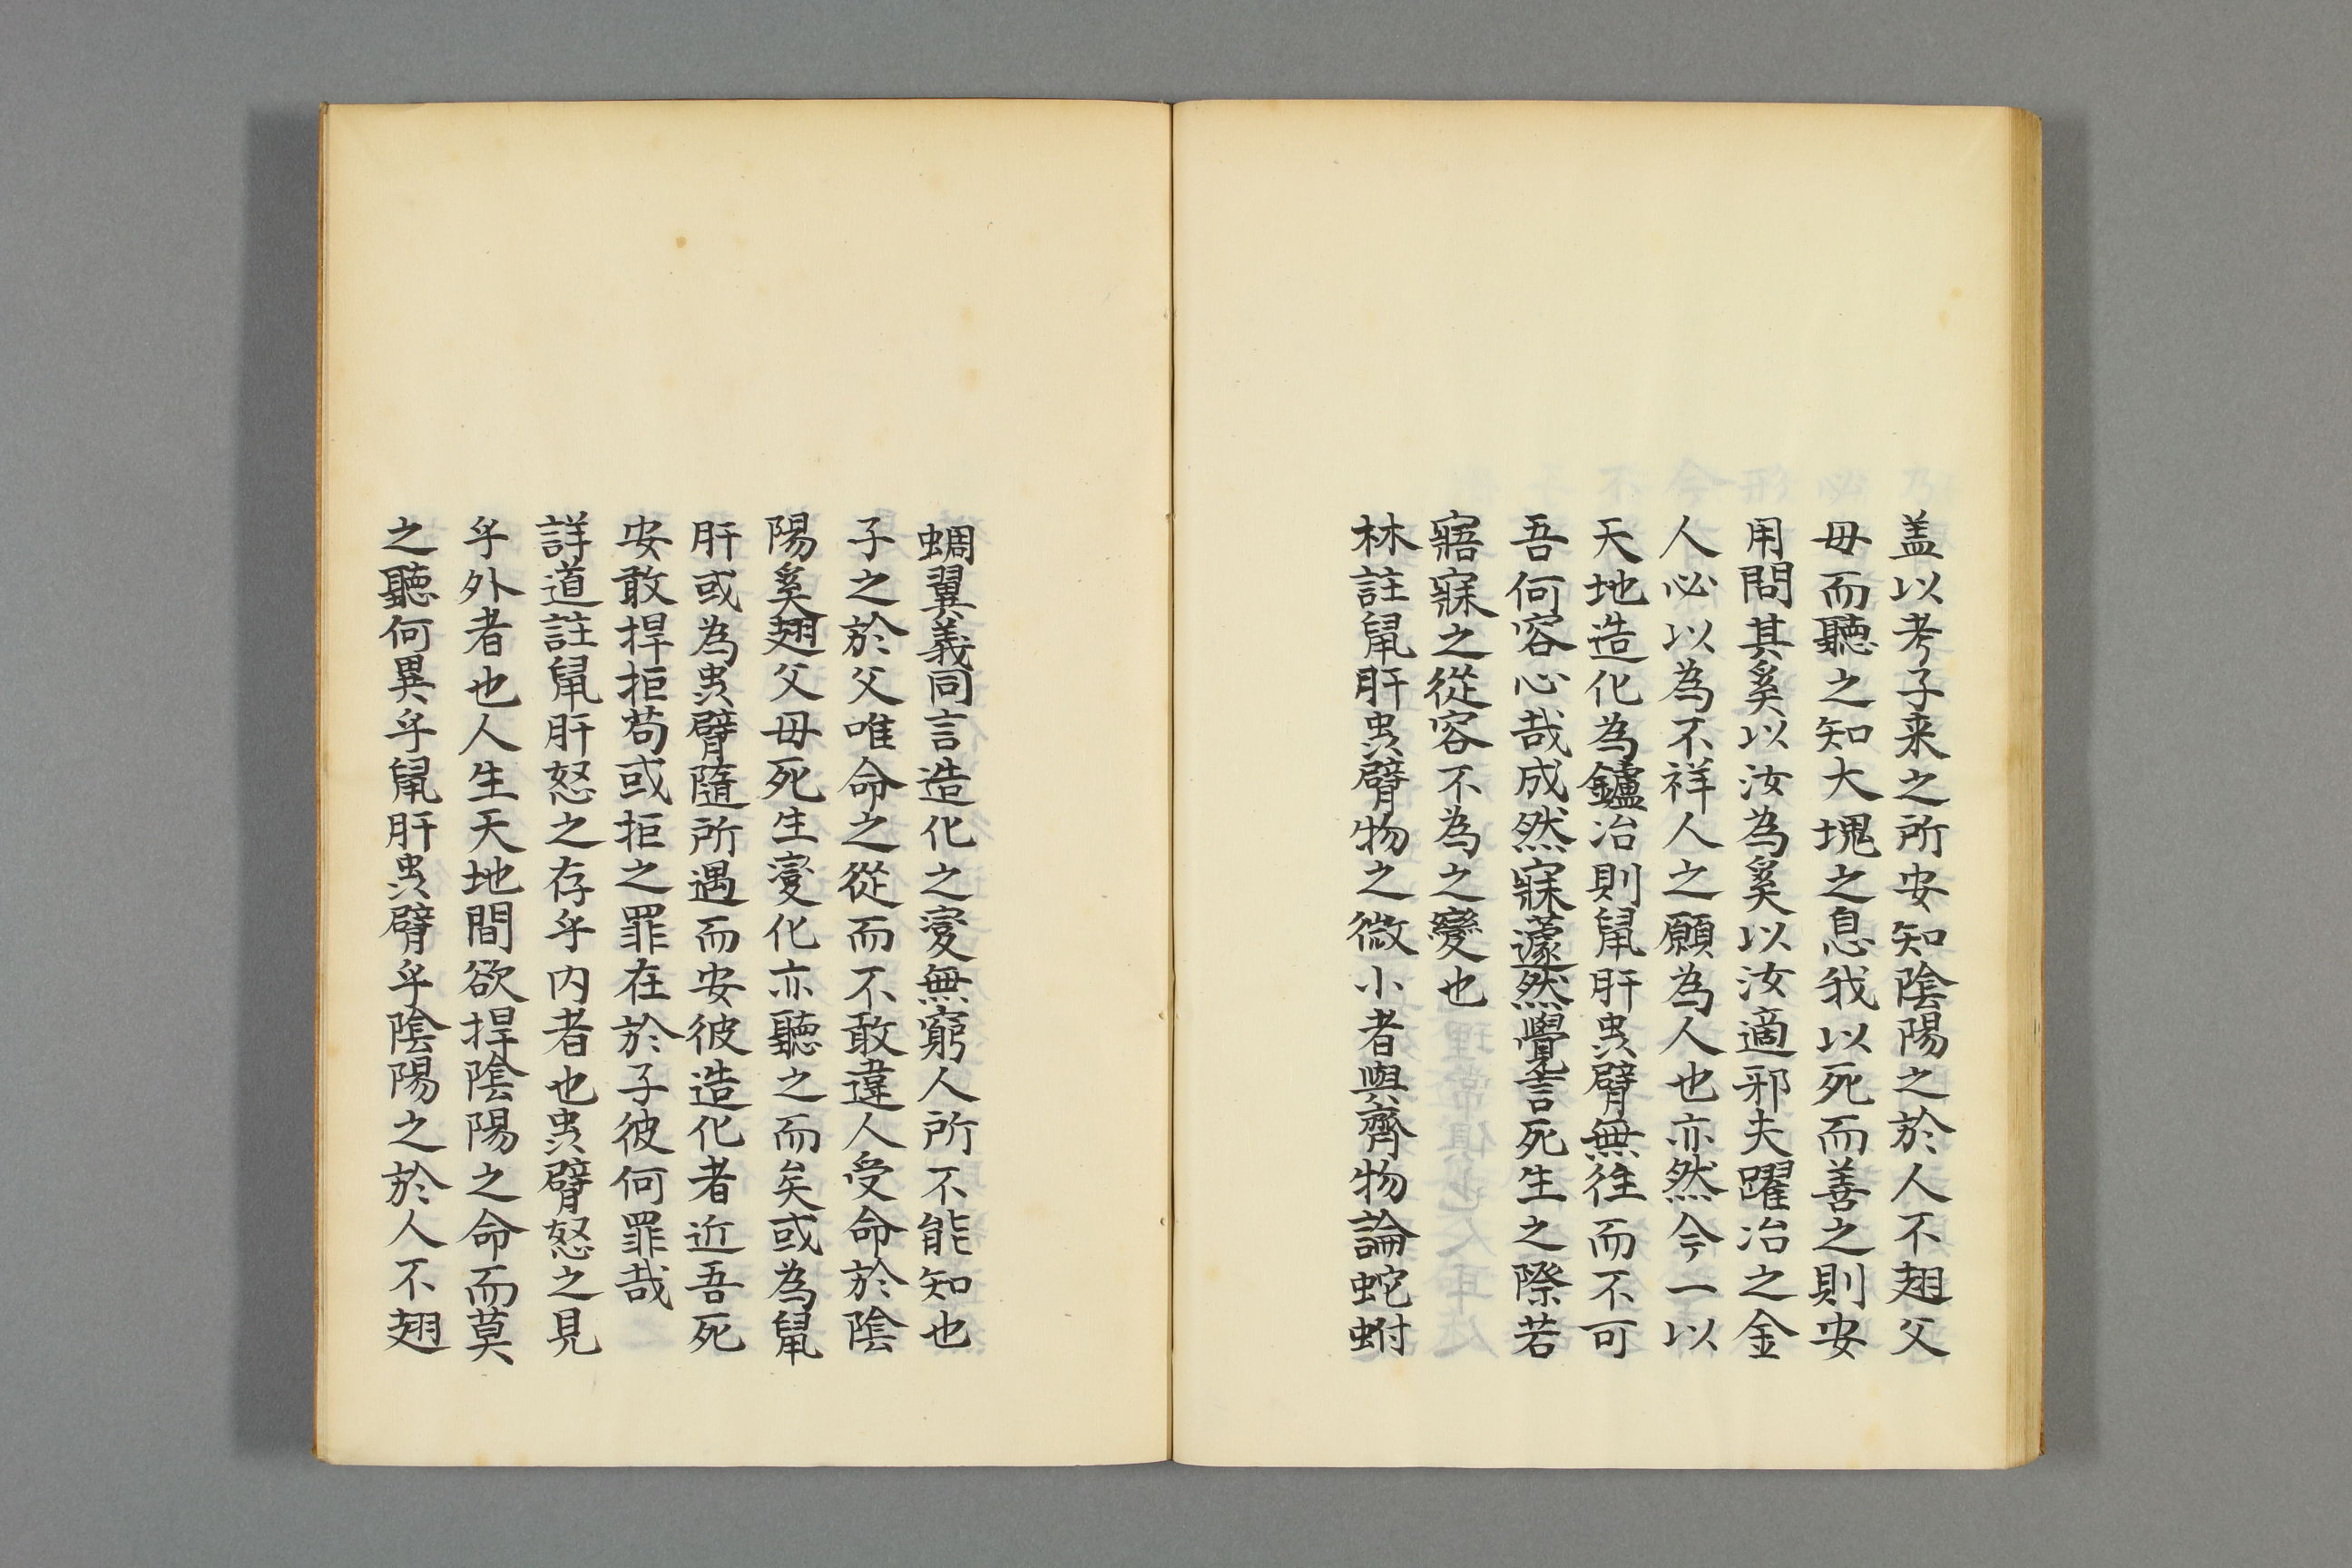 盖以考子来之所安知陰陽之於人不翅父
毋而聽之知大塊之息我以死而善之則安
用問其奚以汝為奚以汝適邪夫躍冶之金
人必以為不祥人之願為人也亦然今一以
天地造化為鑪冶則䑕肝䖝臂無徃而不可
吾何容心哉成然寐蘧然覺言死生之際若
寤寐之從容不為之變也
林註䑕肝䖝臂物之微小者與齊物論蛇蚹
蜩翼義同言造化之変無窮人所不能知也
子之於父唯命之從而不敢違人受命於陰
陽奚翅父毋死生変化亦聽之而矣或為䑕
肝或為䖝臂隨所遇而安彼造化者近吾死
安敢捍拒苟或拒之罪在於子彼何罪哉
詳道註䑕肝怒之存乎内者也䖝臂怒之見
乎外者也人生天地間欲捍陰陽之命而莫
之聽何異乎䑕肝䖝臂乎陰陽之於人不翅